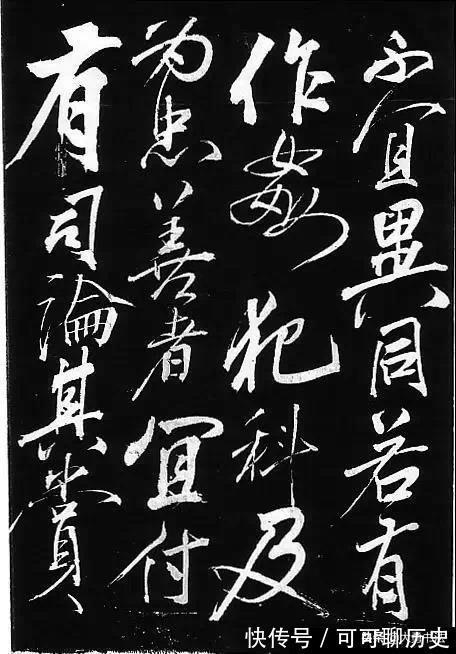 不宜異同若有
作姦犯科及
为忠善者宜付
有司論其賞
快传号 / 可可聊历史